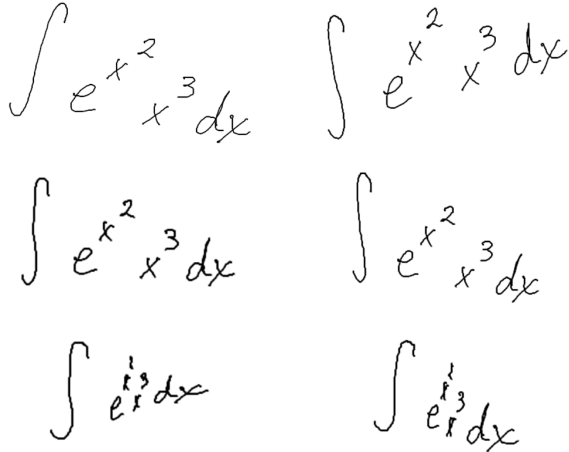 ∫ e^{x^2} x^3 dx ∫ e^{x^2} x^3 dx
∫ e^{x^2} x^3 dx ∫ e^{x^2} x^3 dx
∫ e^{x^2} x^3 dx ∫ e^{x^2} x^3 dx